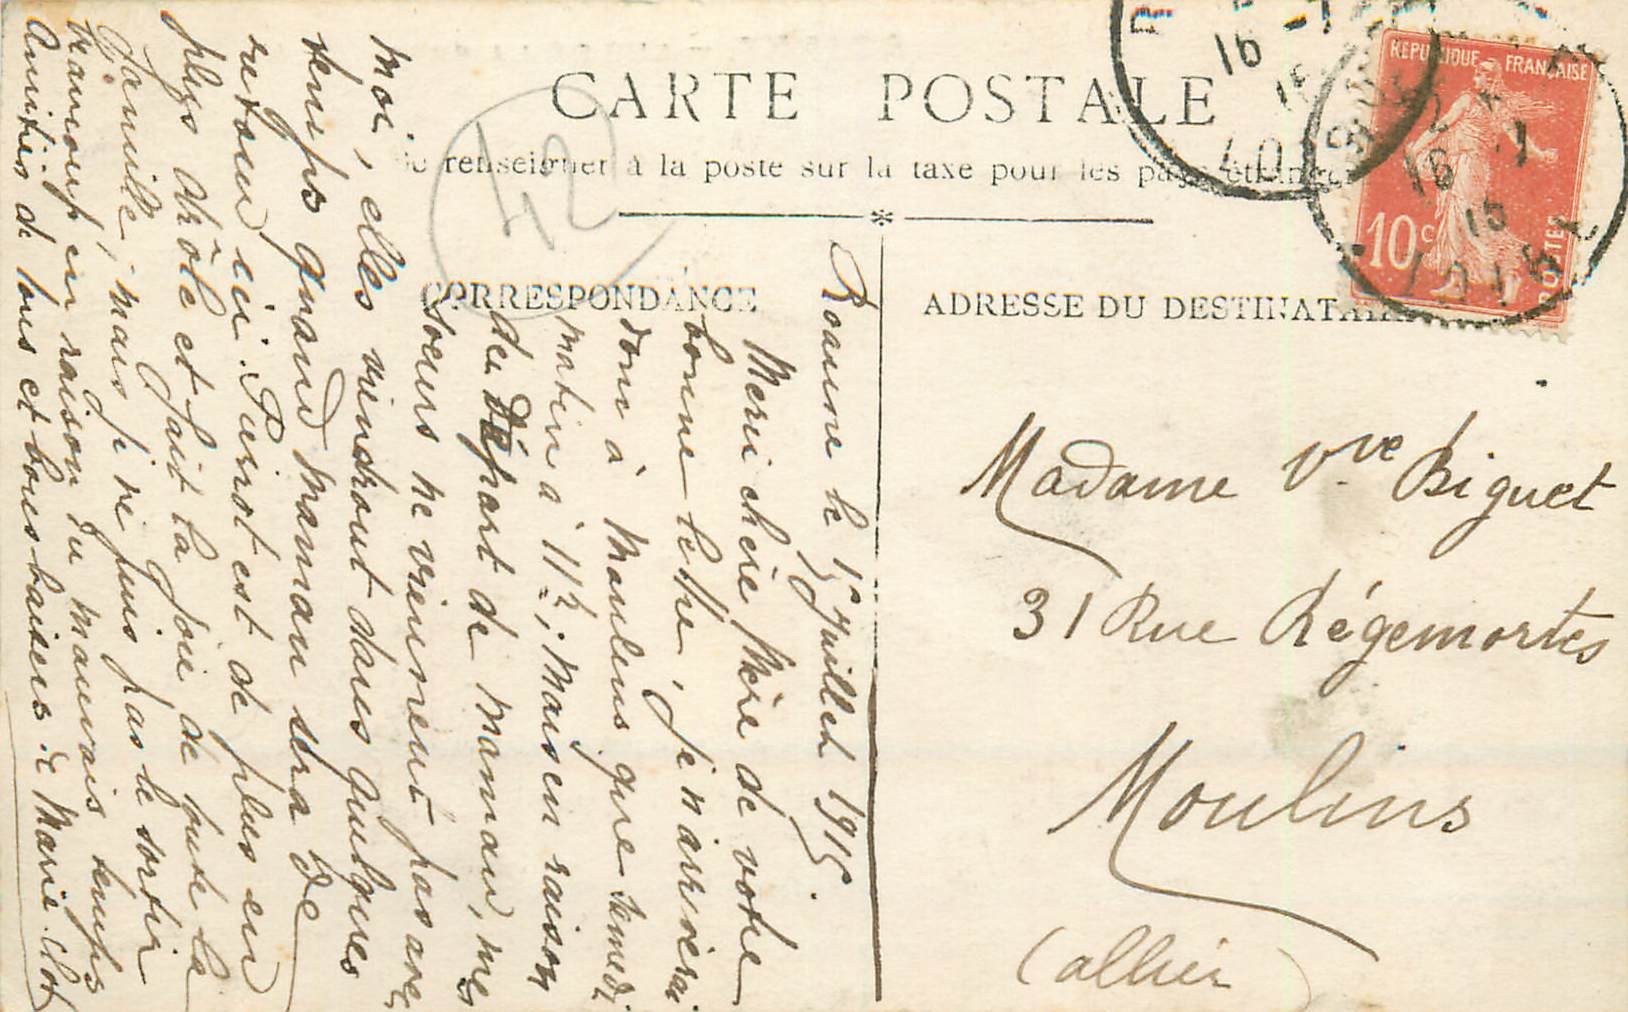 CARTE POSTALE
Se renseigner à la poste sur la taxe pour les pays étrangers
42
CORRESPONDANCE
ADRESSE DU DESTINATAIRE
REPUBLIQUE FRANÇAISE
10c
POSTES
16 -7
15
16 -7
15
LOIRE
Madame Vve Biguet
31 Rue Régemortes
Moulins
(allier)
Roanne le 15 Juillet 1915.
Merci chère Mère de votre
bonne lettre, je n'arriverai
donc à Moulins que samedi
matin à 11h, ; mais en raison
du Départ de maman, mes
soeurs ne viennent pas avec
moi, elles viendront dans quelques
temps quand maman sera de
retour ici. Pierrot est de plus en
plus drôle et fait la joie de toute la
famille, mais je ne puis pas le sortir
beaucoup en raison du mauvais temps
Amitiés de tous et bons baisers. Marie